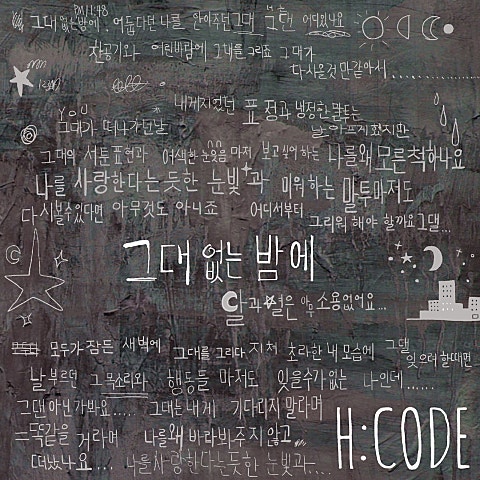 PM 11:48
그대 없는 밤에. 어둡다던 나를 안아주던 그대 그댄 어디있나요
찬공기와 여린바람에 그대를 그리죠 그대가
다시올것만 같아서............
내게 지었던 표정과 냉정한 말투는
YOU
그대가 떠나가던날 날 아프게 했지만
그대의 서툰 표현과 어색한 눈웃음 마저 보고싶어 하는 나를 왜 모른척하나요
나를 사랑한다는 듯한 눈빛과 미워하는 말투마저도
다시볼수있다면 아무것도 아니죠 어디서부터
그리워 해야 할까요 그댈...
그대 없는 밤에
달과 별은 아무 소용없어요...
모두가 잠든 새벽에 그대를 그리다 지쳐 초라한 내 모습에 그댈
잊으려 할때면
날 부르던 그 목소리와 행동들 마저도 잊을수가 없는 나인데......
그댄 아닌가봐요..... 그대는 내게 기다리지 말라며
똑같을 거라며 나를 왜 바라봐주지 않고
떠났나요... 나를 사랑한다는 듯한 눈빛과....
H:CODE